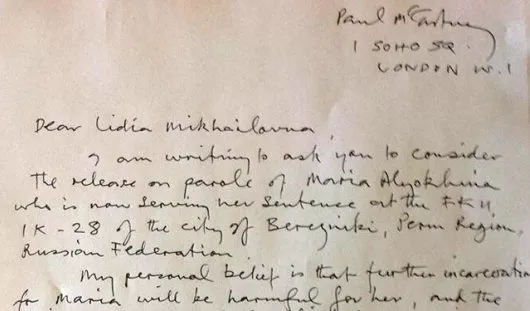 Paul McCartney
1 SOHO SQ.
LONDON W.1
Dear Lidia Mikhailovna,
I am writing to ask you to consider
the release on parole of Maria Alyokhina
who is now serving her sentence at the FKU,
IK-28 of the city of Berezniki, Perm Region,
Russian Federation.
My personal belief is that further incarceration
for Maria will be harmful for her, and the